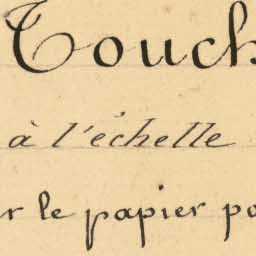 Touch
à l'échelle
r le papier po